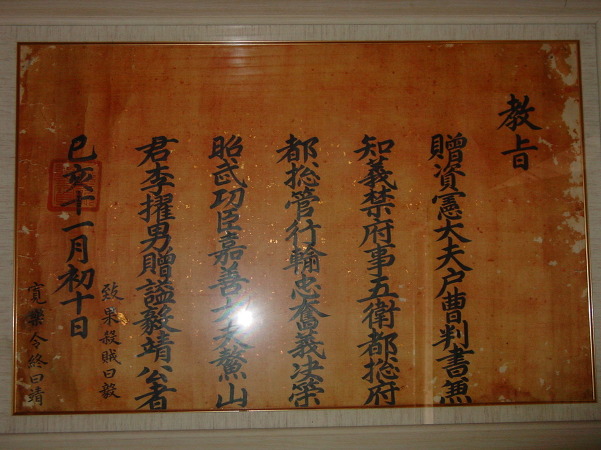 教旨
贈資憲大夫戶曹判書兼
知義禁府事五衛都捴府
都捴管行輸忠奮義決策
昭武功臣嘉善大夫鰲山
君李擢男贈謚毅靖公者
己亥十一月初十日
致果殺賊曰毅
寬樂令終曰靖